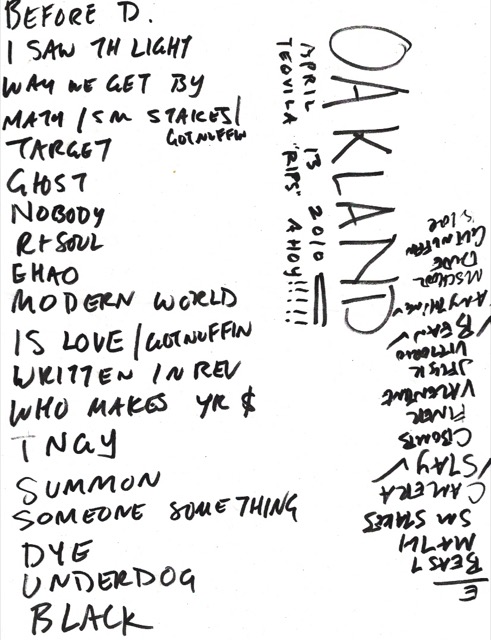 BEFORE D.
I SAW TH LIGHT
WAY WE GET BY
MATH / SM STAKES /
GOTNUFFIN
TARGET
GHOST
NOBODY
R+SOUL
EHAO
MODERN WORLD
IS LOVE / GOTNUFFIN
WRITTEN IN REV
WHO MAKES YR $
TNGY
SUMMON
SOMEONE SOMETHING
DYE
UNDERDOG
BLACK
OAKLAND
APRIL 13 2010
TEQVILA "RIPS" AHOY!!!!!!
E
BEAST
MATH
SM STAKES
CAMERA
STAY ✓
CBOMBS
FINER
VALENTINE
JEALSK
VITTORIO
BEAN ✓
ANYTHING
MSCHOOL
DUDE
GOTNUFFIN